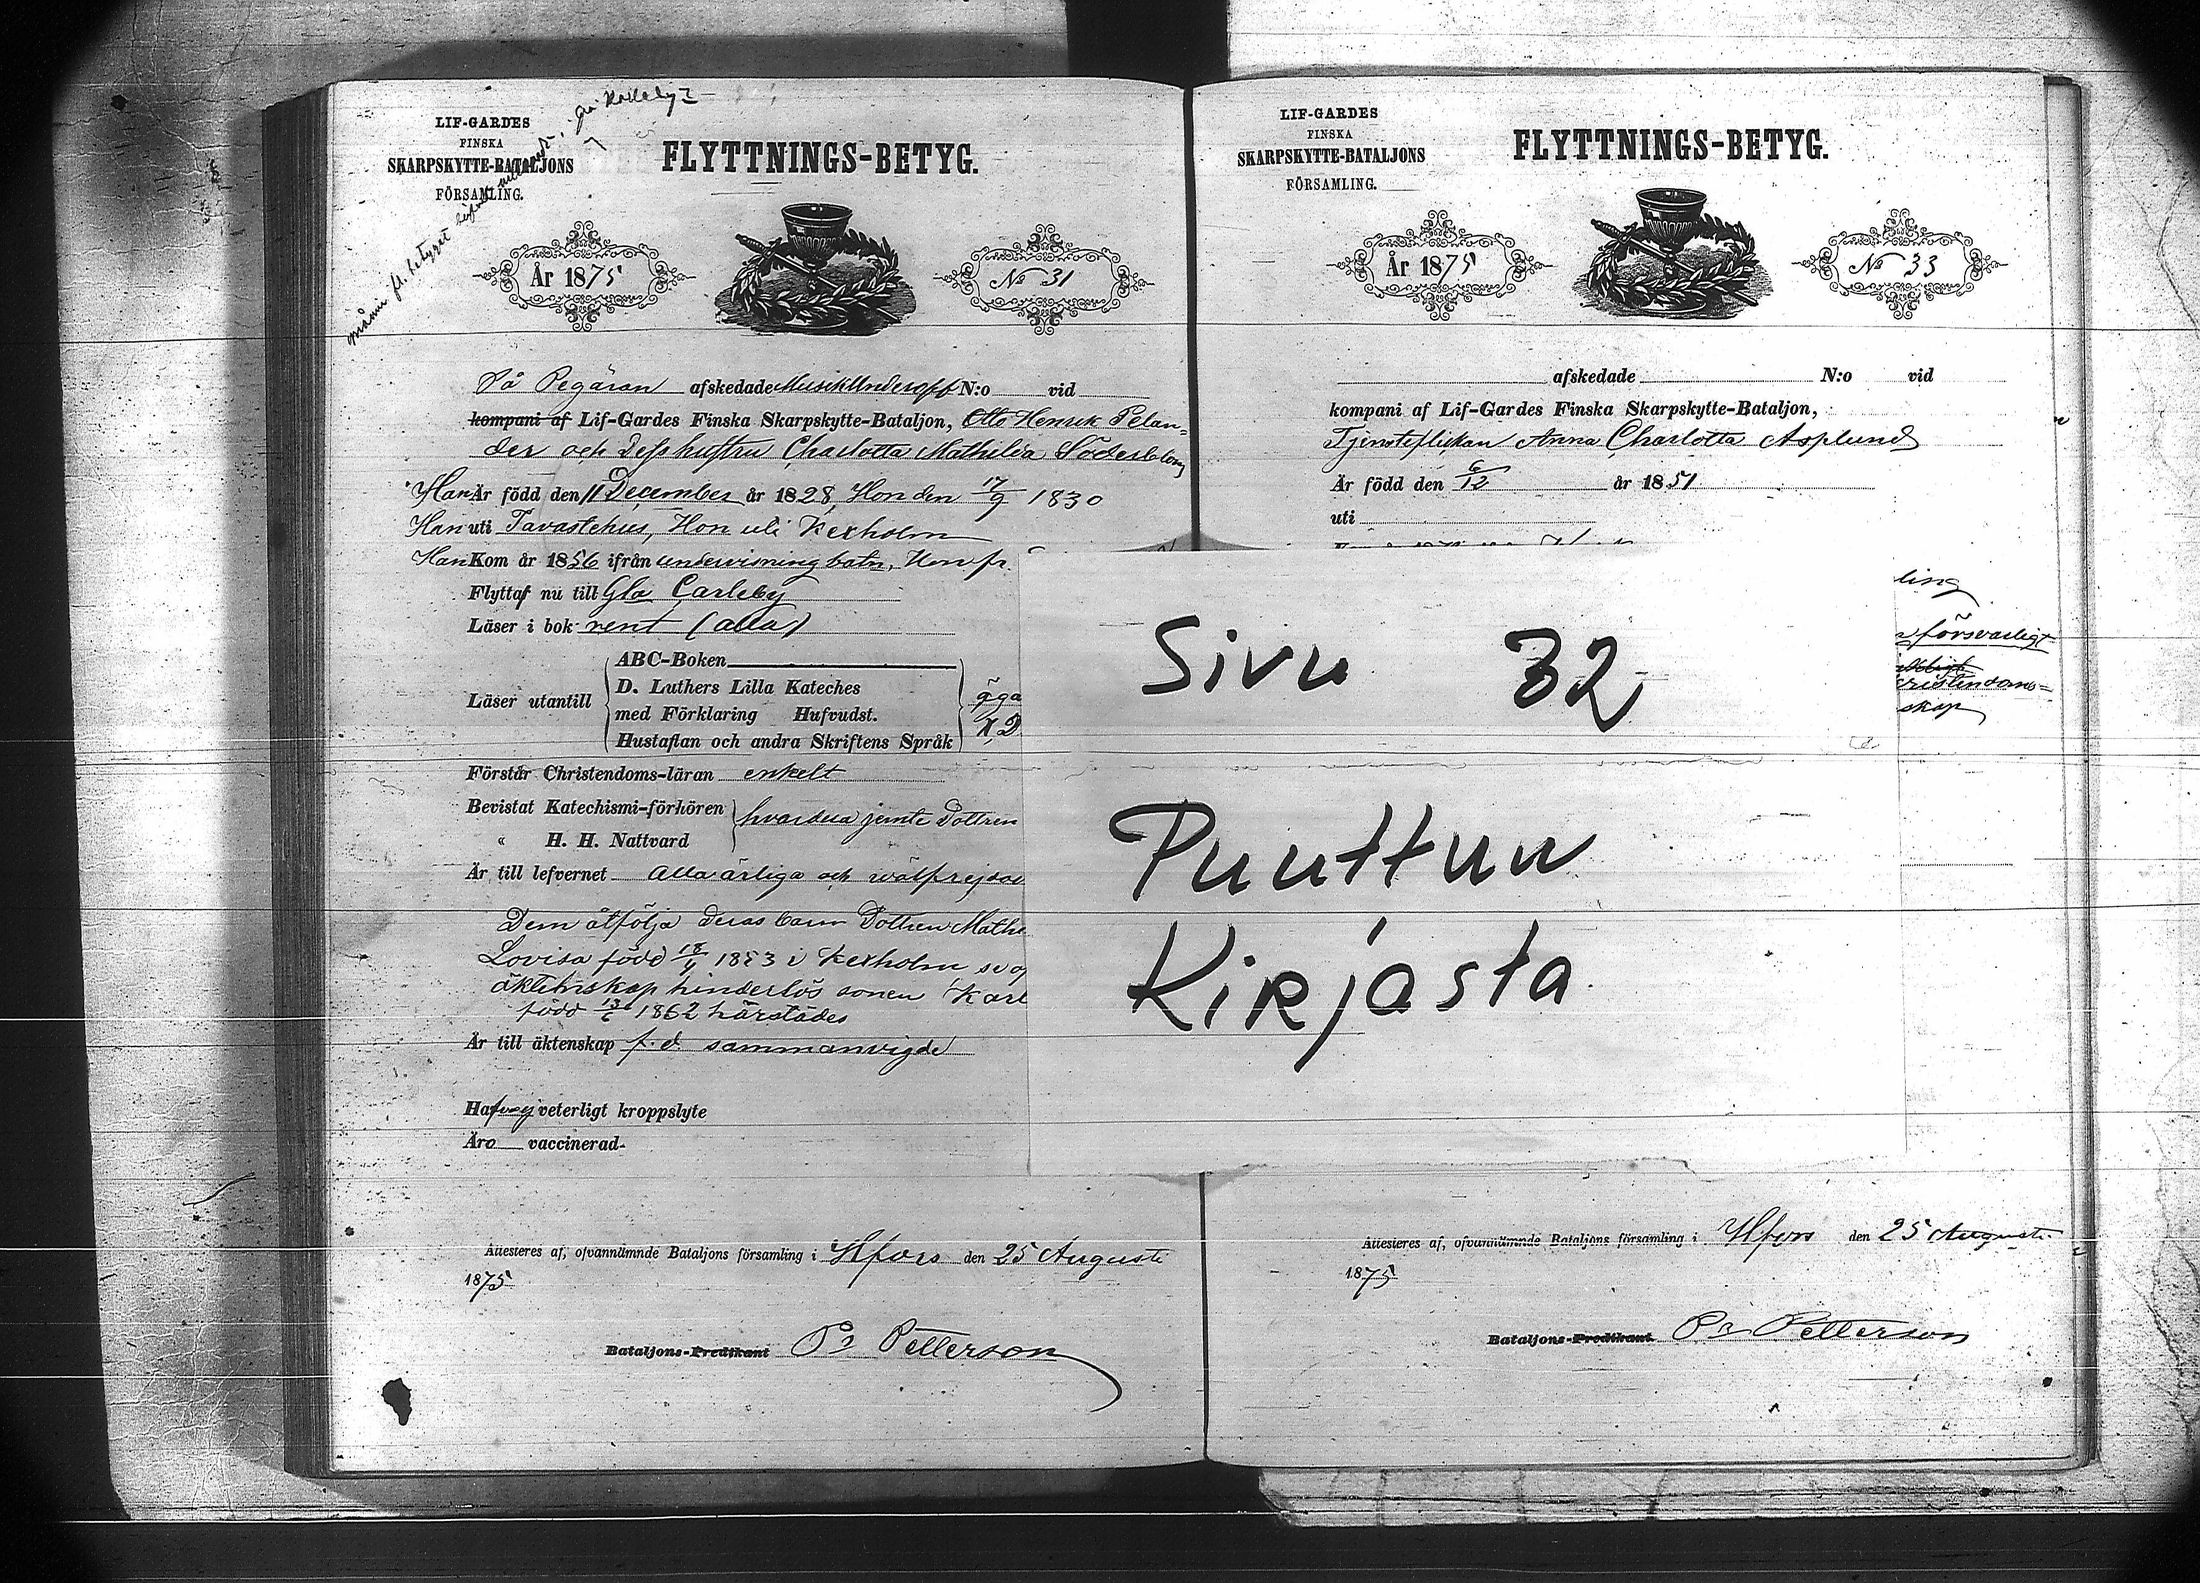 LIF-GARDES
FINSKA
SKARPSKYTTE-BATALJONS
FÖRSAMLING.
FLYTTNINGS-BETYG.
År 1875
No 31
På Begäran afskedade Musik Underoff N:o vid
kompani af Lif-Gardes Finska Skarpskytte-Bataljon, Otto Henrik Pelan-
der och Dess hustru Charlotta Mathilda Söderblom
Han Är född den 11 December år 1828, Hon den 17/9 1830
Han uti Tavastehus, Hon uti Kexholm
Han Kom år 1856 ifrån undervisning batn, Hon fr.
Flyttar nu till Gla Carleby
Läser i bok rent (alla)
Läser utantill
ABC-Boken
D. Luthers Lilla Kateches
med Förklaring Hufvudst.
Hustaflan och andra Skriftens Språk
Förstår Christendoms-läran enkelt
Bevistat Katechismi-förhören
" H. H. Nattvard
hvardera jemte Dottren
Är till lefvernet Alla ärliga och wälfrejdad
Dem åtfölja deras barn Dottren Mathi
Lovisa född 18/4 1853 i Kexholm
äktenskap hinderlös sonen Karl
född 13/6 1862 härstädes
Är till äktenskap f.d. sammanvigde
Hafva ej veterligt kroppslyte
Äro vaccinerad
Attesteras af, ofvannämnde Bataljons församling i Hfors den 25 Augusti
1875
Bataljons-Predikant Petterson
LIF-GARDES
FINSKA
SKARPSKYTTE-BATALJONS
FÖRSAMLING.
FLYTTNINGS-BETYG.
År 1875
No 33
afskedade N:o vid
kompani af Lif-Gardes Finska Skarpskytte-Bataljon,
Tjensteflickan Anna Charlotta Asplund
Är född den 6/12 år 1851
uti
ling
försvarligt
christendoms-
skap
Sivu 32
Puuttuu
Kirjasta
Attesteres af, ofvannämnde Bataljons församling i Hfors den 25 Augusti
1875
Bataljons-Predikant Petterson